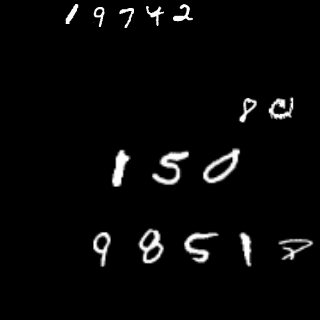 19742
80
150
98518